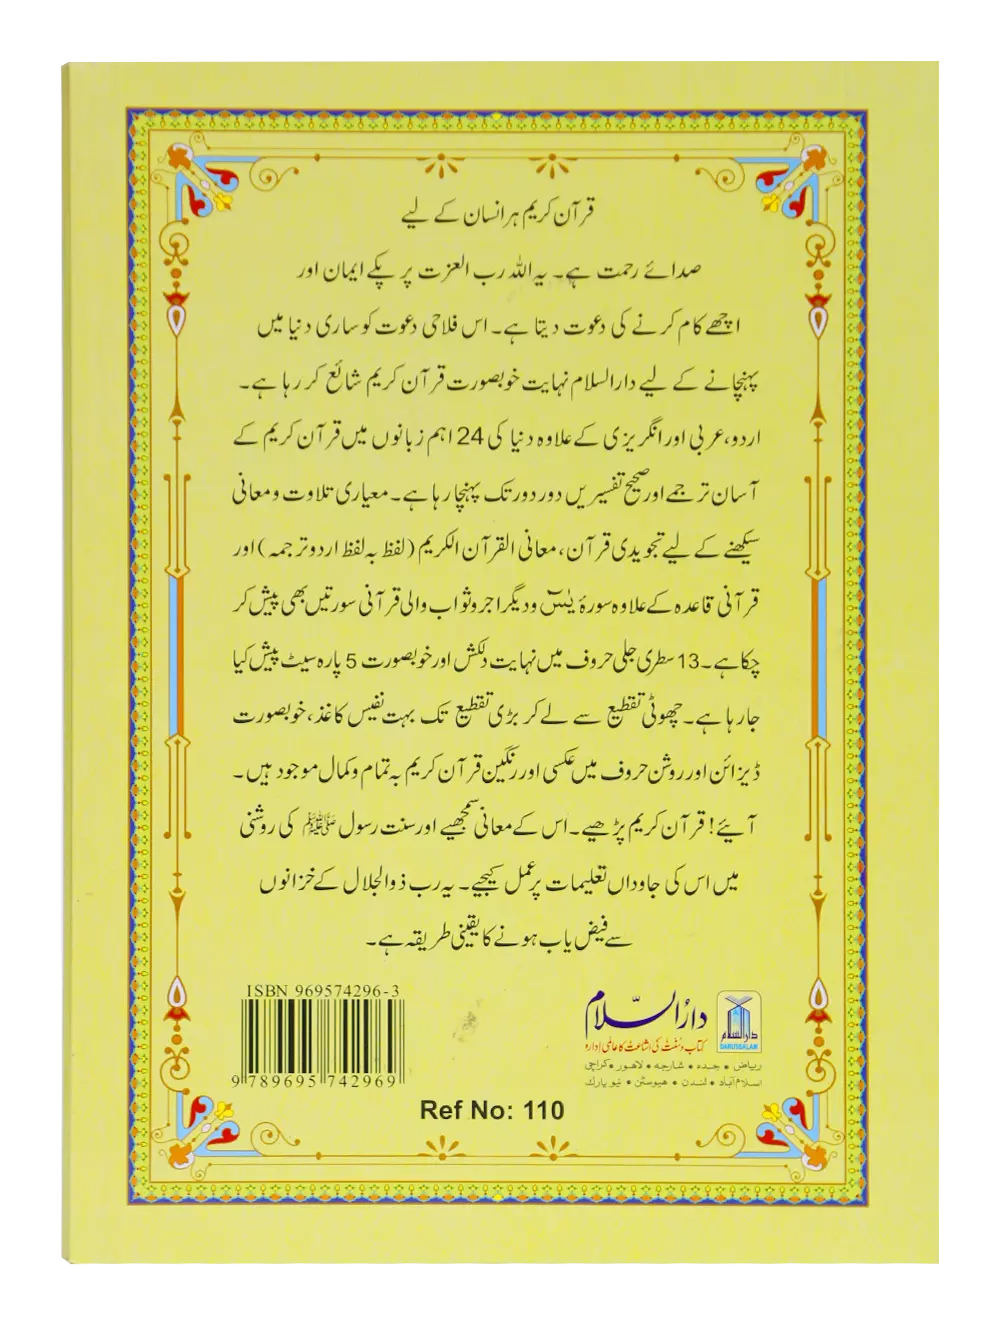 قرآن کریم ہر انسان کے لیے
صدائے رحمت ہے۔ یہ اللہ رب العزت پر پکے ایمان اور
اچھے کام کرنے کی دعوت دیتا ہے۔ اس فلاحی دعوت کو ساری دنیا میں
پہنچانے کے لیے دارالسلام نہایت خوبصورت قرآن کریم شائع کر رہا ہے۔
اردو، عربی اور انگریزی کے علاوہ دنیا کی 24 اہم زبانوں میں قرآن کریم کے
آسان ترجمے اور صحیح تفسیریں دور دور تک پہنچا رہا ہے۔ معیاری تلاوت و معانی
سیکھنے کے لیے تجویدی قرآن، معانی القرآن الکریم (لفظ بہ لفظ اردو ترجمہ) اور
قرآنی قاعدہ کے علاوہ سورۂ یٰسٓ و دیگر اجر و ثواب والی قرآنی سورتیں بھی پیش کر
چکا ہے۔ 13 سطری جلی حروف میں نہایت دلکش اور خوبصورت 5 پارہ سیٹ پیش کیا
جا رہا ہے۔ چھوٹی تقطیع سے لے کر بڑی تقطیع تک بہت نفیس کاغذ، خوبصورت
ڈیزائن اور روشن حروف میں عکسی اور رنگین قرآن کریم بہ تمام و کمال موجود ہیں۔
آیئے! قرآن کریم پڑھیے۔ اس کے معانی سمجھیے اور سنت رسول ﷺ کی روشنی
میں اس کی جاوداں تعلیمات پر عمل کیجیے۔ یہ رب ذوالجلال کے خزانوں
سے فیض یاب ہونے کا یقینی طریقہ ہے۔
ISBN 969574296-3
9 789695 742969
دارالسلام
کتاب و سنت کی اشاعت کا عالمی ادارہ
ریاض • جدہ • شارجہ • لاہور • کراچی
اسلام آباد • لندن • ہیوسٹن • نیو یارک
دارالسلام
DARUSSALAM
Ref No: 110